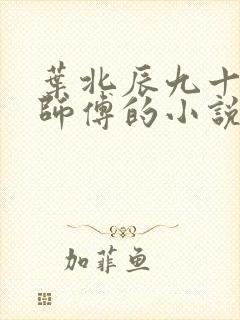 葉北辰九十
師傅的小說
加菲鱼